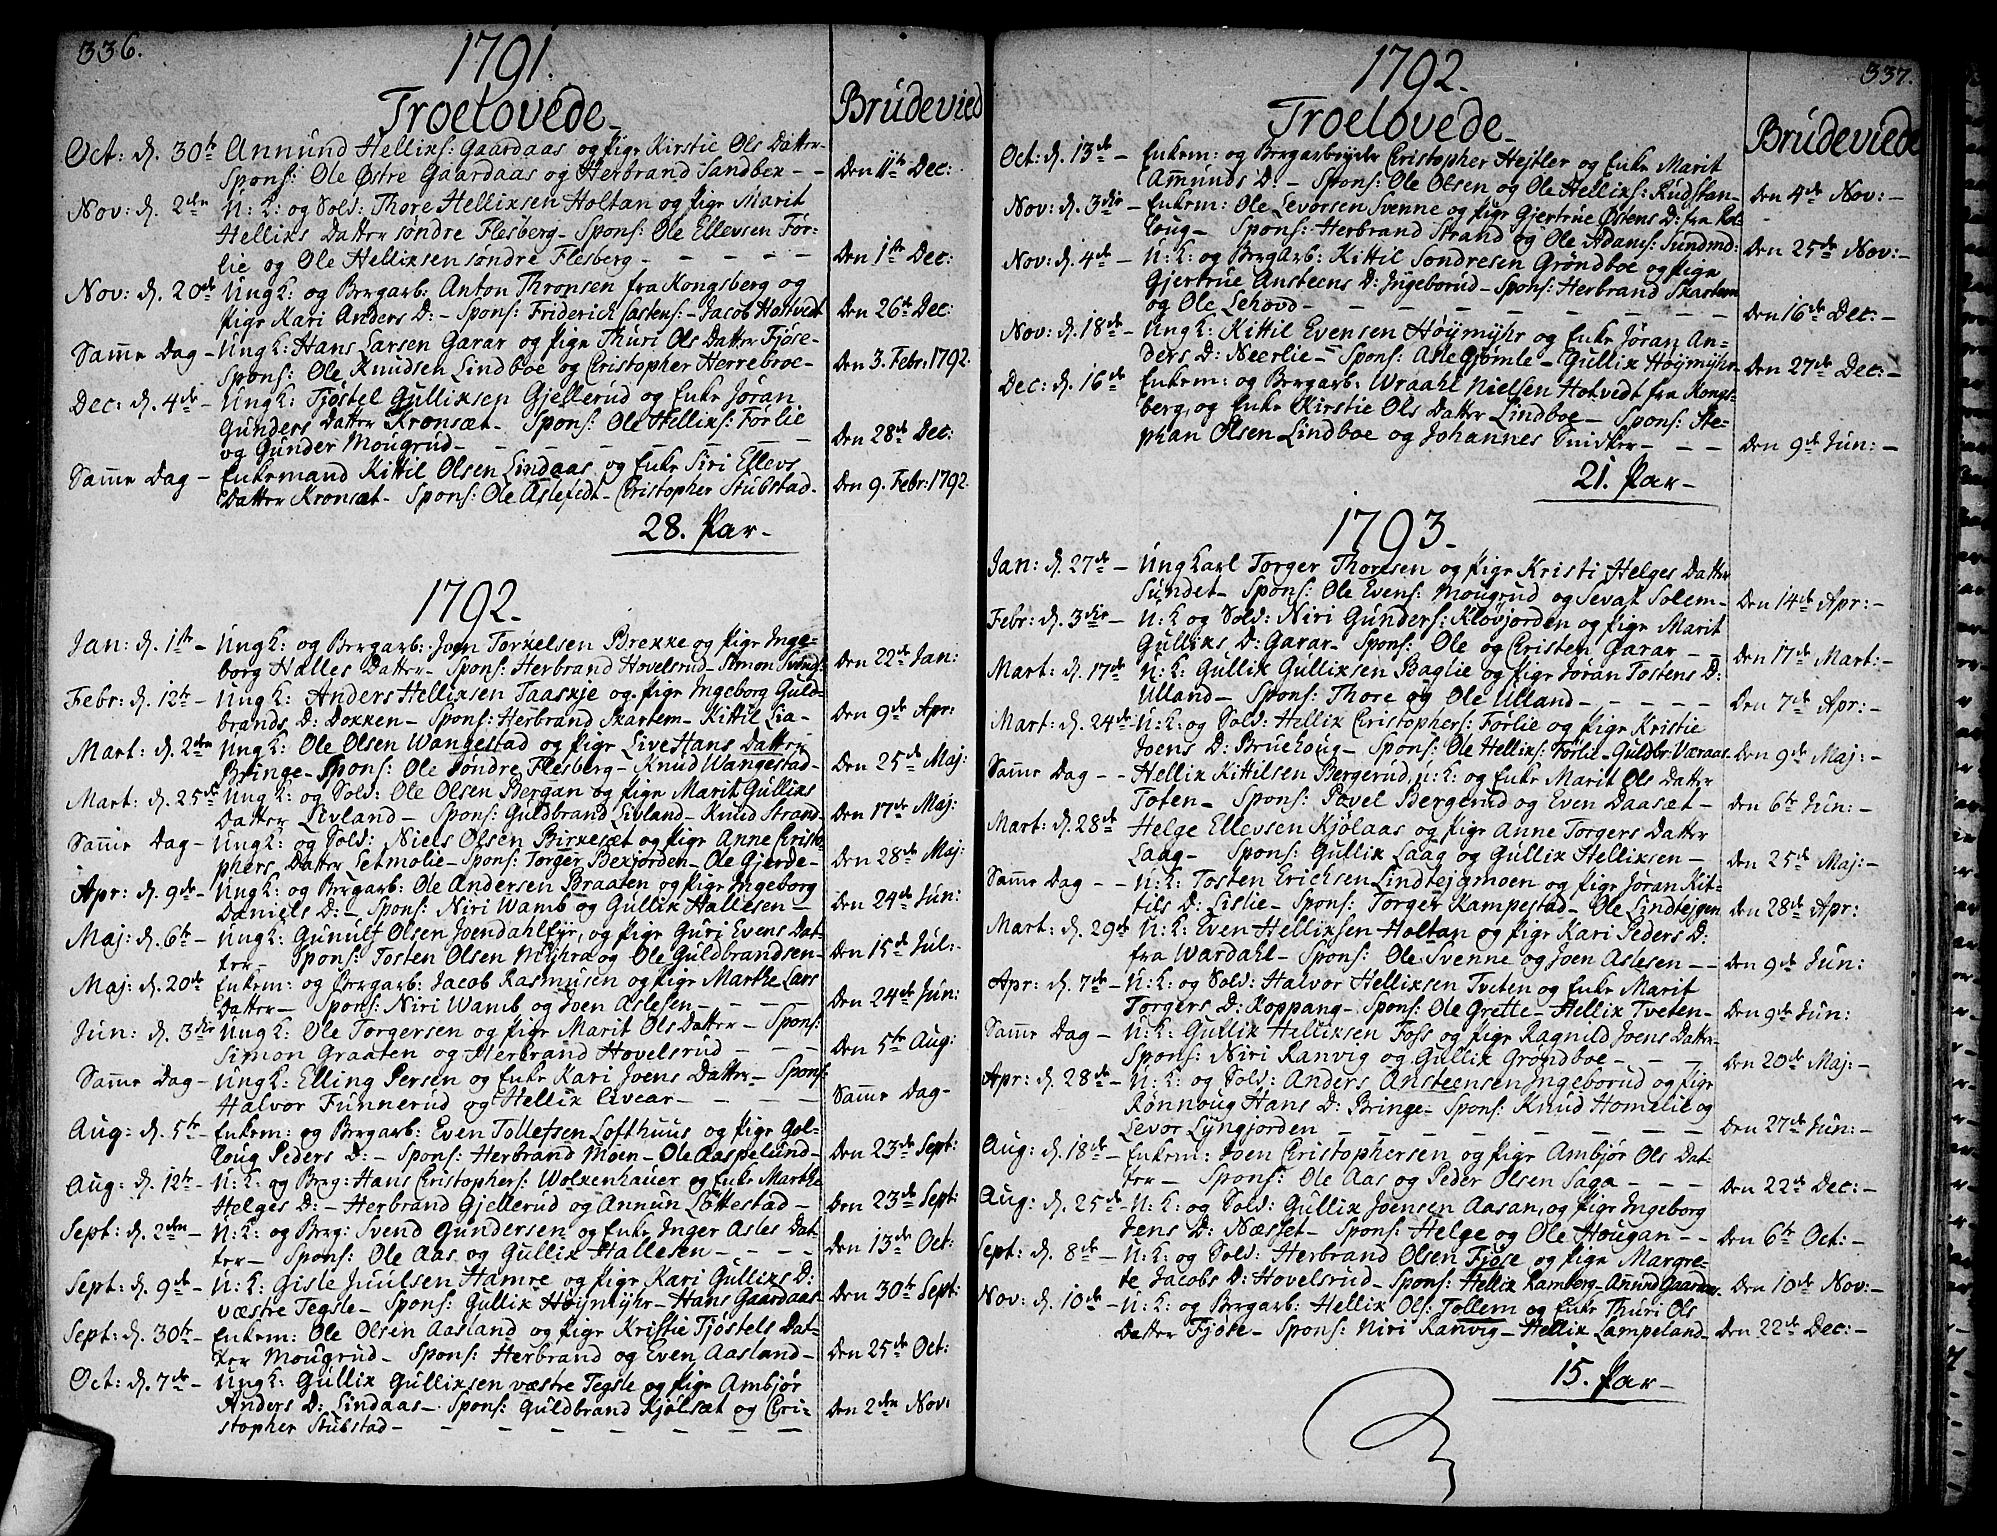 336.
1791.
Troelovede_
Brudeviede
Oct: d. 30te Annund Helliks: Gaardaas og Pige Kirstie Ols Datter-
Spons: Ole Østre Gaardaas og Herbrand Sandbek - - Den 11te Dec:
Nov: d. 2den U: K: og Sold: Thore Helliksen Holtan og Pige Marit
Helliks Datter søndre Flesberg - Spons: Ole Ellevsen Før-
lie og Ole Helliksen søndre Flesberg - - - - - Den 1te Dec:
Nov: d. 20de Ung K: og Bergarb: Anton Thronsen fra Kongsberg og
Pige Kari Anders D: - Spons: Friderich Castens: - Jacob Holtvedt Den 26te Dec:
Samme Dag - Ung K: Hans Larsen Garar og Pige Thuri Ols Datter Fjøse-
Spons: Ole Knudsen Lindboe og Christopher Herrebroe - Den 3. Febr: 1792.
Dec: d. 4de - Ung K: Tjøstel Gulliksen Gjellerud og Enke Jøran
Gunders Datter Kronsæt - Spons: Ole Helliks: Førlie
og Gunder Mougrud - - - - - - Den 28de Dec:
Samme Dag - Enkemand Kittil Olsen Lindaas og Enke Siri Ellevs
Datter Kronsæt - Spons: Ole Aslefedt - Christopher Stubstad. Den 9. Febr: 1792.
28. Par -
1792.
Jan: d. 1te - Ung K: og Bergarb: Joen Torkelsen Brekke og Pige Inge-
borg Halles Datter - Spons: Herbrand Hovelsrud - Simon Svinds: Den 22de Jan:
Febr: d. 12te - Ung K: Anders Helliksen Taaskje og Pige Ingeborg Guld-
brands D: Dokken - Spons: Herbrand Skartem - Kittil Lia - Den 9de Apr:
Mart: d. 2den Ung K: Ole Olsen Wangestad og Pige Live Hans Datter
Bringe - Spons: Ole søndre Flesberg - Knud Wangestad - Den 25de Maj:
Mart: d. 25de Ung K: og Sold: Ole Olsen Bergan og Pige Marit Gulliks
Datter Livland - Spons: Guldbrand Livland - Knud Strand Den 17de Maj:
Samme Dag - Ung K: og Sold: Niels Olsen Birkesæt og Pige Anne Christo-
phers Datter Letmolie - Spons: Torger Bekjorden - Ole Gjerde - Den 28de Maj:
Apr: d. 9de - Ung K: og Bergarb: Ole Andersen Braaten og Pige Ingeborg
Daniels D: - Spons: Niri Wamb og Gullik Hallesen - Den 24de Jun:
Maj: d. 6te - Ung K: Gunulf Olsen Joendahlfyr, og Pige Guri Evens Dat-
ter - Spons: Tosten Olsen Myhra og Ole Guldbrandsen - Den 15de Jul: -
Maj: d. 20de Enkem: og Bergarb: Jacob Rasmusen og Pige Marthe Lars
Datter - Spons: Niri Wamb og Joen Aslesen - - - - Den 24de Jun:
Jun: d. 3die Ung K: Ole Torgersen og Pige Marit Ols Datter - Spons:
Simon Graaten og Herbrand Hovelsrud - - - Den 5te Aug:
Samme Dag - Ung K: Elling Persen og Enke Kari Joens Datter - Spons:
Halvor Funnerud og Hellik Livear - - - - - Samme Dag -
Aug: d. 5te Enkem: og Bergarb: Even Tollefsen Lofthuus og Pige Gol-
loug Peders D: - Spons: Herbrand Moen - Ole Aaspelund - Den 23de Sept:
Aug: d. 12te - U: K: og Berg: Hans Christophers: Wolkenhauer og Enke Marthe
Helges D: - Herbrand Gjellerud og Annun Løttestad - Den 23de Sept:
Sept: d. 2den - U: K: og Berg: Svend Gundersen og Enke Inger Asles Dat-
ter - Spons: Ole Aas og Gullik Hallesen - - - - Den 13de Oct:
Sept: d. 9de - U: K: Gisle Juulsen Hamre og Pige Kari Gulliks D:
væstre Tegsle - Spons: Gullik Høymyhr - Hans Gaardaas - Den 30te Sept:
Sept: d. 30te - Enkem: Ole Olsen Aasland og Pige Kristie Tjøstels Dat-
ter Mougrud - Spons: Herbrand og Even Aasland - Den 25de Oct:
Oct: d. 7de - Ung K: Gullik Gulliksen væstre Tegsle og Pige Ambjør
Anders D: Lindaas - Spons: Guldbrand Kjølsæt og Chri-
stopher Stubstad - - - - - - - Den 2den Nov:
337.
1792.
Troelovede_
Brudeviede
Oct: d. 13de - Enkem: og Bergarbeyder Christopher Hejtler og Enke Marit
Amunds D: - Spons: Ole Olsen og Ole Helliks: Rudstan - Den 4de Nov: -
Nov: d. 3die - Enkem: Ole Levorsen Svenne og Pige Gjertrue Østens D: fra Rol-
loug - Spons: Herbrand Strand og Ole Adams: Sundmd: Den 25de Nov: -
Nov: d. 4de - U: K: og Bergarb: Kittil Sondresen Grøndboe og Pige
Gjertrue Ansteens D: Ingeborud - Spons: Herbrand Skartem
og Ole Lehovd - - - - - - - Den 16de Dec: -
Nov: d. 18de - Ung K: Kittil Evensen Høymyhr og Enke Jøran An-
ders D: Neerlie - Spons: Asle Gjømle - Gullik Høymyhr - Den 27de Dec: -
Dec: d. 16de Enkem: og Bergarb: Wraahl Nielsen Hotvedt fra Kongs-
berg, og Enke Kirstie Ols Datter Lindboe - Spons: Ste-
phan Olsen Lindboe og Johannes Snidker - - - Den 9de Jun: -
21. Par -
1793.
Jan: d. 27de - Ungkarl Torger Thoresen og Pige Kristi Helges Datter
Sundet - Spons: Ole Evens: Mougrud og Sevat Solem - Den 14de Apr: -
Febr: d. 3die - U: K: og Sold: Niri Gunders: Kløvjorden og Pige Marit
Gulliks D: Garar - Spons: Ole og Christen Garar - - Den 17de Mart: -
Mart: d. 17de U: K: Gullik Gulliksen Baglie og Pige Jøran Tostens D:
Ulland - Spons: Thore og Ole Ulland - - - - - Den 7de Apr: -
Mart: d. 24de - U: K: og Sold: Hellik Christophers: Førlie og Pige Kristie
Joens D: Bruehoug - Spons: Ole Helliks: Førlie - Guldbr: Væraas - Den 9de Maj: -
Samme Dag - - Hellik Kittilsen Bergerud, U: K: og Enke Marit Ols Datter
Toten - Spons: Pavel Bergerud og Even Daasæt - Den 6te Jun: -
Mart: d. 28de Helge Ellevsen Kjølaas og Pige Anne Torgers Datter
Laag - Spons: Gullik Laag og Gullik Helliksen - Den 25de Maj: -
Samme Dag - - U: K: Tosten Erichsen Lindtejgmoen og Pige Jøran Kit-
tils D: Lislie - Spons: Torger Kampestad - Ole Lindtejgen Den 28de Apr:
Mart: d. 29de U: K: Even Helliksen Holtan og Pige Kari Peders D:
fra Wardahl - Spons: Ole Svenne og Joen Aslesen - - Den 9de Jun:
Apr: d. 7de - U: K: og Sold: Halvor Helliksen Tveten og Enke Marit
Torgers D: Koppang - Spons: Ole Grette - Hellik Tveten - Den 9de Jun:
Samme Dag - U: K: Gullik Helliksen Foss og Pige Ragnild Joens Datter -
Spons: Niri Ranvig og Gullik Grøndboe - - - - Den 20de Maj: -
Apr: d. 28de - U: K: og Sold: Anders Ansteensen Ingeborud og Pige
Rønnoug Hans D: Bringe - Spons: Knud Homelie og
Levor Lyngjorden - - - - - - - Den 27de Jun: -
Aug: d. 18de Enkem: Joen Christophersen og Pige Ambjør Ols Dat-
ter - Spons: Ole Aas og Peder Olsen Saga - - - Den 22de Dec: -
Aug: d. 25de - U: K: og Sold: Gullik Joensen Aasan, og Pige Ingeborg
Jens D: Næsset - Spons: Helge og Ole Hougan - - Den 6te Oct: -
Sept: d. 8de - U: K: og Sold: Herbrand Olsen Fjøse og Pige Margre-
te Jacobs D: Hovelsrud - Spons: Hellik Ramberg - Annund Gaardaas Den 10de Nov: -
Nov: d. 10de - U: K: og Bergarb: Hellik Ols: Tollem og Enke Thuri Ols
Datter Fjøse - Spons: Niri Ranvig - Hellik Lampeland - Den 22de Dec: -
15. Par -